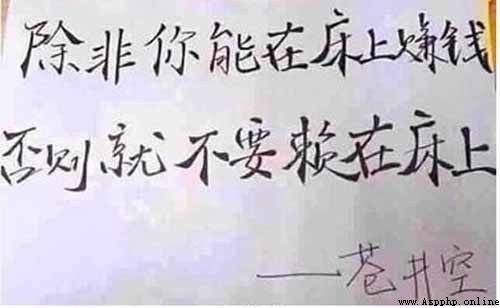 除非你能在床上赚钱
否则就不要赖在床上
——苍井空
www.Aspphp.online